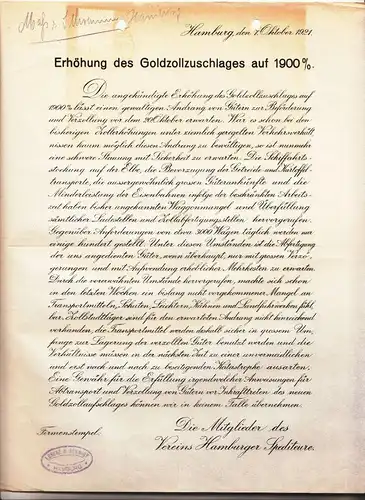 Hamburg, den 7. Oktober 1921.
Erhöhung des Goldzollzuschlages auf 1900 %.
Die angekündigte Erhöhung des Goldzollzuschlages auf
1900% lässt einen gewaltigen Andrang von Gütern zur Beförderung
und Verzollung vor dem 20. Oktober erwarten. War es schon bei den
bisherigen Zollerhöhungen unter ziemlich geregelten Verkehrsverhält
nissen kaum möglich diesen Andrang zu bewältigen, so ist nunmehr
eine schwere Stauung mit Sicherheit zu erwarten. Die Schiffahrts-
stockung auf der Elbe, die Bevorzugung der Getreide- und Kartoffel-
transporte, die aussergewöhnlich grossen Güterankünfte und die
Minderleistung der Eisenbahnen infolge der beschränkten Arbeits-
zeit haben bisher ungekannten Waggonmangel und Überfüllung
sämtlicher Ladestellen und Zollabfertigungsstellen hervorgerufen.
Gegenüber Anforderungen von etwa 3000 Wagen täglich werden nur
einige hundert gestellt. Unter diesen Umständen ist die Abfertigung
der uns angedienten Güter, wenn überhaupt, nur mit grossen Verzö-
gerungen und mit Aufwendung erheblicher Mehrkosten zu erwarten.
Durch die vorerwähnten Umstände hervorgerufen, machte sich schon
in den letzten Wochen ein bislang nicht vorgekommener Mangel an
Transportmitteln, Schuten, Leichtern, Kähnen und Landfuhrwerken fühl-
bar. Zollstadtläger sind für den erwarteten Andrang nicht hinreichend
vorhanden, die Transportmittel werden deshalb sicher in grossem Um-
fange zur Lagerung der verzollten Güter benutzt werden und die
Verhältnisse müssen in der nächsten Zeit zu einer unvermeidlichen
und erst nach und nach zu beseitigenden Katastrophe ausarten.
Eine Gewähr für die Erfüllung irgendwelcher Anweisungen für
Abtransport und Verzollung von Gütern vor Inkrafttreten des neuen
Goldzollaufschlages können wir in keinem Falle übernehmen.
Firmenstempel:
Die Mitglieder des
Vereins Hamburger Spediteure.
HAMBURG